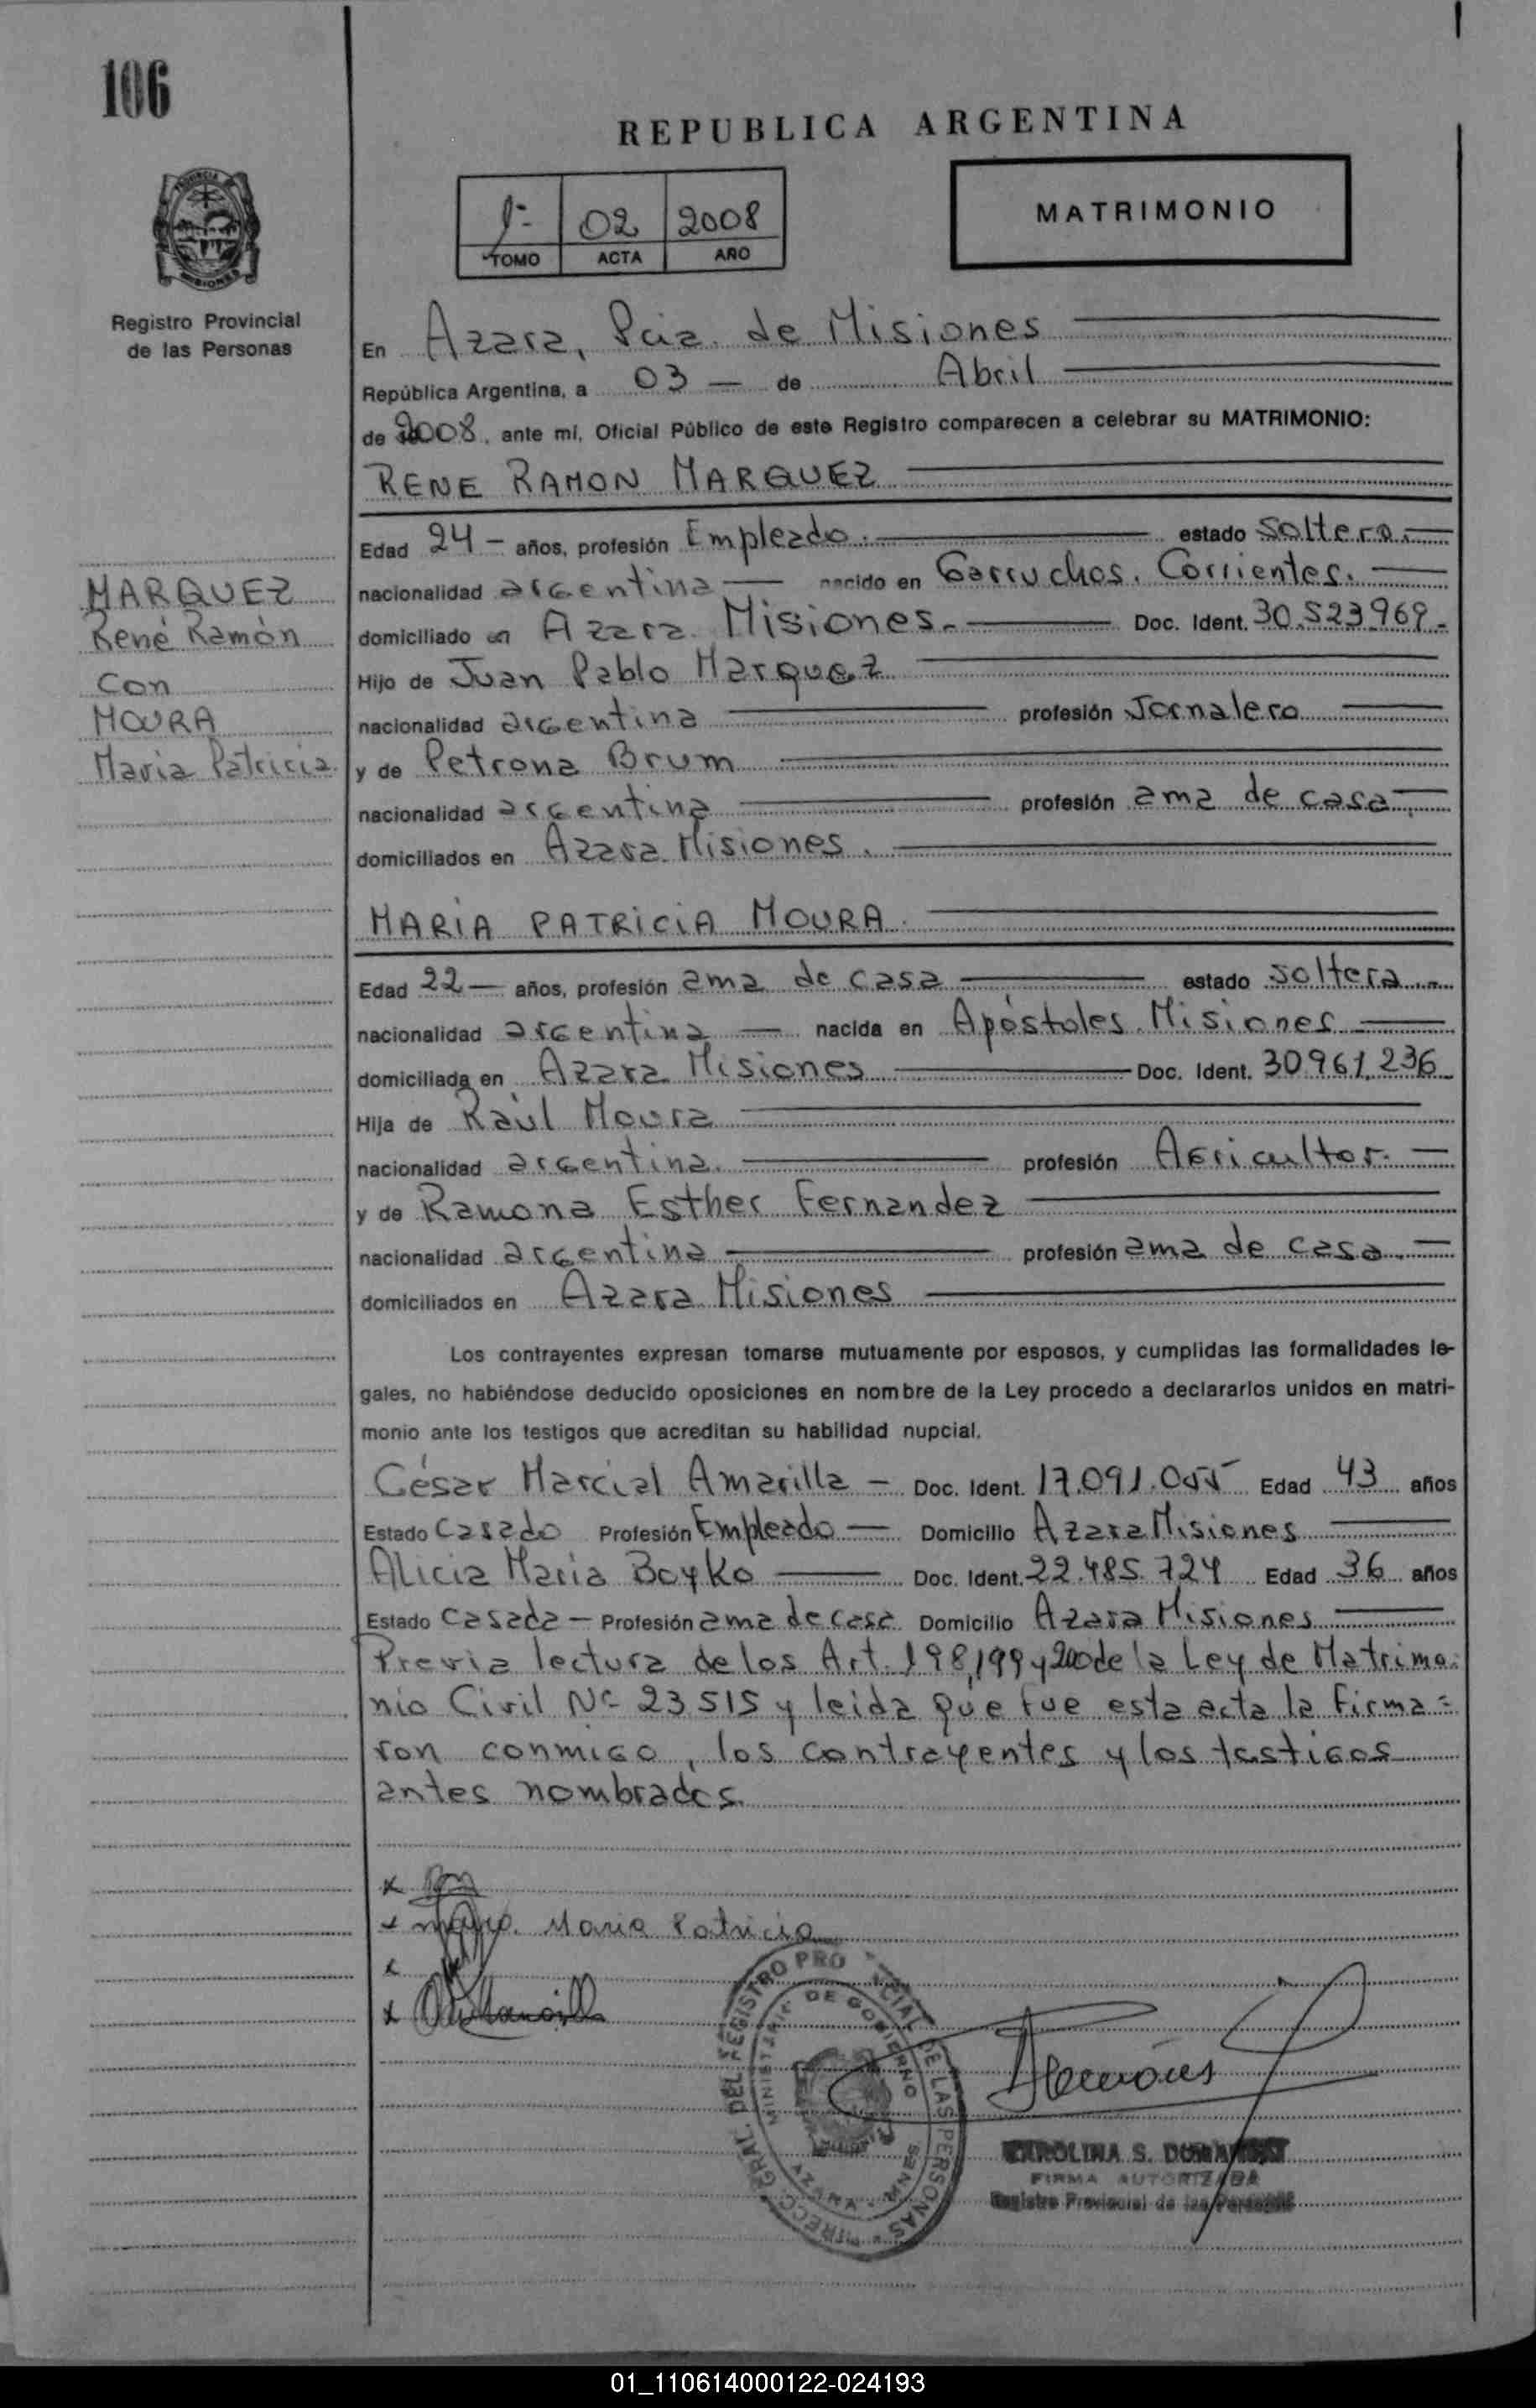 106
REPUBLICA ARGENTINA
1º 02 2008
TOMO ACTA AÑO
MATRIMONIO
PROVINCIA
MISIONES
Registro Provincial
de las Personas
En Azara, Pcia. de Misiones
República Argentina, a 03 — de Abril
de 2008, ante mí, Oficial Público de este Registro comparecen a celebrar su MATRIMONIO:
RENE RAMON MARQUEZ
Edad 24 — años, profesión Empleado. estado Soltero.
MARQUEZ
René Ramón
Con
MOURA
Maria Patricia.
nacionalidad argentina — nacido en Garruchos. Corrientes. —
domiciliado en Azara. Misiones. — Doc. Ident. 30.523.969.
Hijo de Juan Pablo Marquez
nacionalidad argentina profesión Jornalero
y de Petrona Brum
nacionalidad argentina profesión ama de casa
domiciliados en Azara Misiones.
MARIA PATRICIA MOURA.
Edad 22 — años, profesión ama de casa estado soltera
nacionalidad argentina — nacida en Apóstoles Misiones
domiciliada en Azara Misiones Doc. Ident. 30.961.236
Hija de Raúl Moura
nacionalidad argentina. profesión Agricultor. —
y de Ramona Esther Fernandez
nacionalidad argentina profesión ama de casa. —
domiciliados en Azara Misiones
Los contrayentes expresan tomarse mutuamente por esposos, y cumplidas las formalidades le-
gales, no habiéndose deducido oposiciones en nombre de la Ley procedo a declararlos unidos en matri-
monio ante los testigos que acreditan su habilidad nupcial.
César Marcial Amarilla — Doc. Ident. 17.091.055 Edad 43 años
Estado Casado Profesión Empleado — Domicilio Azara Misiones
Alicia Maria Boyko Doc. Ident. 22.485.724 Edad 36 años
Estado Casada — Profesión ama de casa Domicilio Azara Misiones
Previa lectura de los Art. 198,199 y 200 de la Ley de Matrimo=
nio Civil Nº 23.515 y leida que fue esta acta la firma=
ron conmigo, los contrayentes y los testigos
antes nombrados.
x
x Maria Patricia
x
x
DIRECC. GRAL. DEL REGISTRO PROVINCIAL DE LAS PERSONAS
MINISTERIO DE GOBIERNO
AZARA - MNES.
CAROLINA S.
FIRMA AUTORIZADA
Registro Provincial de las Personas
01_110614000122-024193